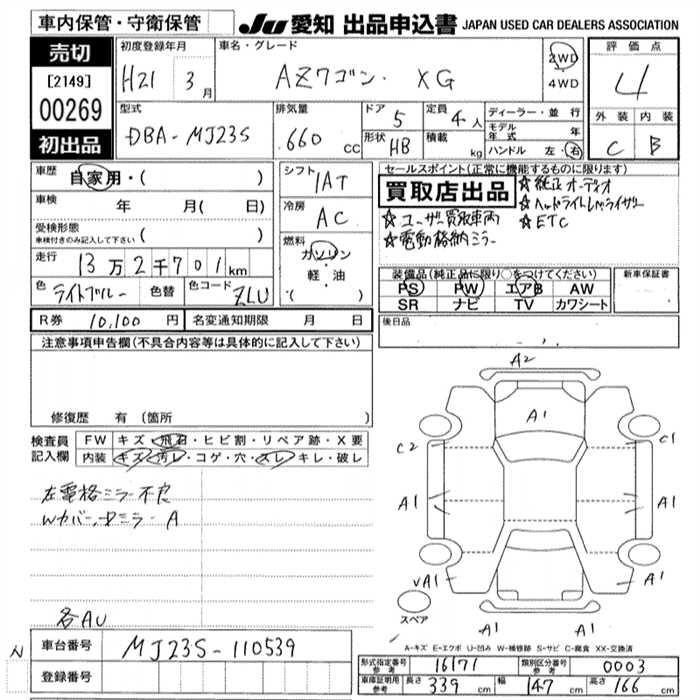 車内保管・守衛保管
JU 愛知 出品申込書 JAPAN USED CAR DEALERS ASSOCIATION
売切
[2149]
00269
初出品
初度登録年月
H21 3月
車名・グレード
AZワゴン XG
2WD
4WD
評価点
4
外装 内装
C B
型式
DBA-MJ23S
排気量
660 cc
ドア 5
形状 HB
定員 4人
積載 kg
ディーラー・並行
モデル年式 年
ハンドル 左・右
車歴
自家用・( )
車検 年 月( 日)
受検形態
車検付きのみ記入して下さい ( )
走行 13万2千701km
色 ライトブルー 色替 色コード ZLU
シフト
IAT
冷房
AC
燃料
ガソリン
・
軽・油
( )
セールスポイント(正常に機能するものに限ります)
買取店出品
☆純正オーディオ
☆ヘッドライトレベライザー
☆ユーザー買取車両
☆ETC
☆電動格納ミラー
装備品(純正品に限り○をつけてください)
PS PW エアB AW
SR ナビ TV カワシート
新車保証書
後日品
R券 10,100円 名変通知期限 月 日
注意事項申告欄(不具合内容等は具体的に記入して下さい)
修復歴 有 (箇所 )
検査員記入欄
FW キズ・飛石・ヒビ割・リペア跡・X要
内装 キズ・汚レ・コゲ・穴・スレ・キレ・破レ
左電格ミラー不良
Wカバー、ドミラーA
各AU
A2
A1
C2
C1
A1
A1
VA1
A1
スペア
A1
A1
A-キズ E-エクボ U-凹み W-補修跡 S-サビ C-腐食 XX-交換済
N
車台番号 MJ23S-110539
登録番号
形式指定番号 参考 16171 類別区分番号 参考 0003
車庫証明用 参考 長さ 339cm 幅 147cm 高さ 166cm